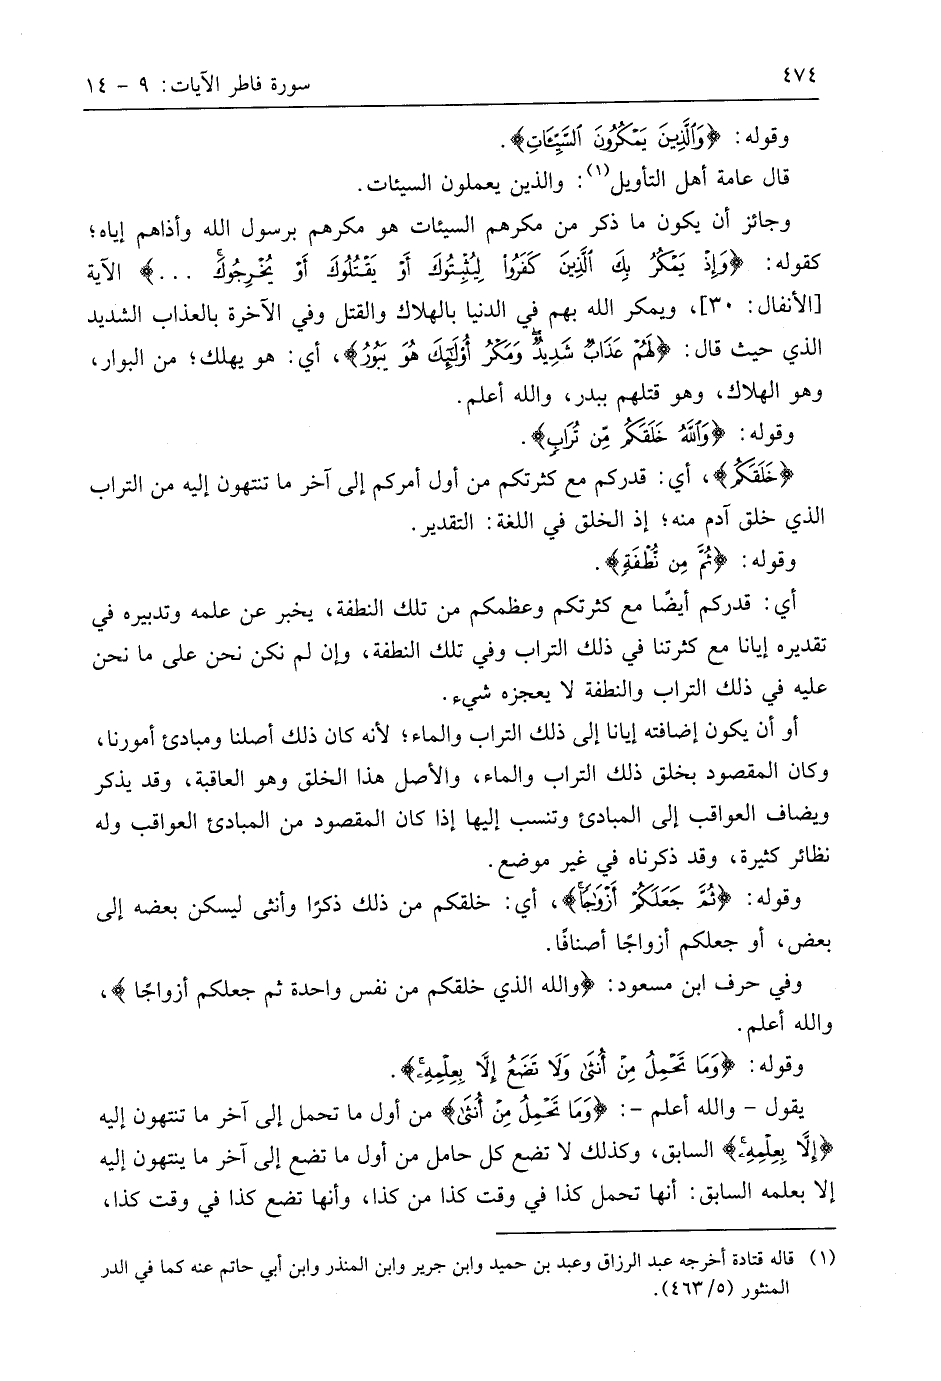 ٤٧٤
سورة فاطر الآيات: ٩ - ١٤
وقوله: ﴿وَٱلَّذِينَ يَمْكُرُونَ ٱلسَّيِّـَٔاتِ﴾.
قال عامة أهل التأويل(١): والذين يعملون السيئات.
وجائز أن يكون ما ذكر من مكرهم السيئات هو مكرهم برسول الله وأذاهم إياه؛
كقوله: ﴿وَإِذْ يَمْكُرُ بِكَ ٱلَّذِينَ كَفَرُوا۟ لِيُثْبِتُوكَ أَوْ يَقْتُلُوكَ أَوْ يُخْرِجُوكَ ۚ ...﴾ الآية
[الأنفال: ٣٠]، ويمكر الله بهم في الدنيا بالهلاك والقتل وفي الآخرة بالعذاب الشديد
الذي حيث قال: ﴿لَهُمْ عَذَابٌ شَدِيدٌ ۖ وَمَكْرُ أُو۟لَـٰٓئِكَ هُوَ يَبُورُ﴾، أي: هو يهلك؛ من البوار،
وهو الهلاك، وهو قتلهم ببدر، والله أعلم.
وقوله: ﴿وَٱللَّهُ خَلَقَكُم مِّن تُرَابٍ﴾.
﴿خَلَقَكُم﴾، أي: قدركم مع كثرتكم من أول أمركم إلى آخر ما تنتهون إليه من التراب
الذي خلق آدم منه؛ إذ الخلق في اللغة: التقدير.
وقوله: ﴿ثُمَّ مِن نُّطْفَةٍ﴾.
أي: قدركم أيضًا مع كثرتكم وعظمكم من تلك النطفة، يخبر عن علمه وتدبيره في
تقديره إيانا مع كثرتنا في ذلك التراب وفي تلك النطفة، وإن لم نكن نحن على ما نحن
عليه في ذلك التراب والنطفة لا يعجزه شيء.
أو أن يكون إضافته إيانا إلى ذلك التراب والماء؛ لأنه كان ذلك أصلنا ومبادئ أمورنا،
وكان المقصود بخلق ذلك التراب والماء، والأصل هذا الخلق وهو العاقبة، وقد يذكر
ويضاف العواقب إلى المبادئ وتنسب إليها إذا كان المقصود من المبادئ العواقب وله
نظائر كثيرة، وقد ذكرناه في غير موضع.
وقوله: ﴿ثُمَّ جَعَلَكُمْ أَزْوَٰجًا ۚ﴾، أي: خلقكم من ذلك ذكرًا وأنثى ليسكن بعضه إلى
بعض، أو جعلكم أزواجًا أصنافًا.
وفي حرف ابن مسعود: ﴿والله الذي خلقكم من نفس واحدة ثم جعلكم أزواجًا﴾،
والله أعلم.
وقوله: ﴿وَمَا تَحْمِلُ مِنْ أُنثَىٰ وَلَا تَضَعُ إِلَّا بِعِلْمِهِۦ ۚ﴾.
يقول - والله أعلم -: ﴿وَمَا تَحْمِلُ مِنْ أُنثَىٰ﴾ من أول ما تحمل إلى آخر ما تنتهون إليه
﴿إِلَّا بِعِلْمِهِۦ ۚ﴾ السابق، وكذلك لا تضع كل حامل من أول ما تضع إلى آخر ما ينتهون إليه
إلا بعلمه السابق: أنها تحمل كذا في وقت كذا من كذا، وأنها تضع كذا في وقت كذا،
(١) قاله قتادة أخرجه عبد الرزاق وعبد بن حميد وابن جرير وابن المنذر وابن أبي حاتم عنه كما في الدر
المنثور (٥/٤٦٣).